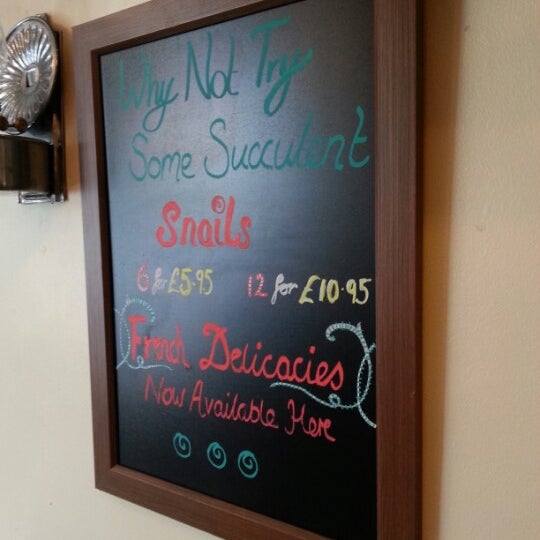 Why Not Try
Some Succulent
Snails
6 for £5.95 12 for £10.95
French Delicacies
Now Available Here